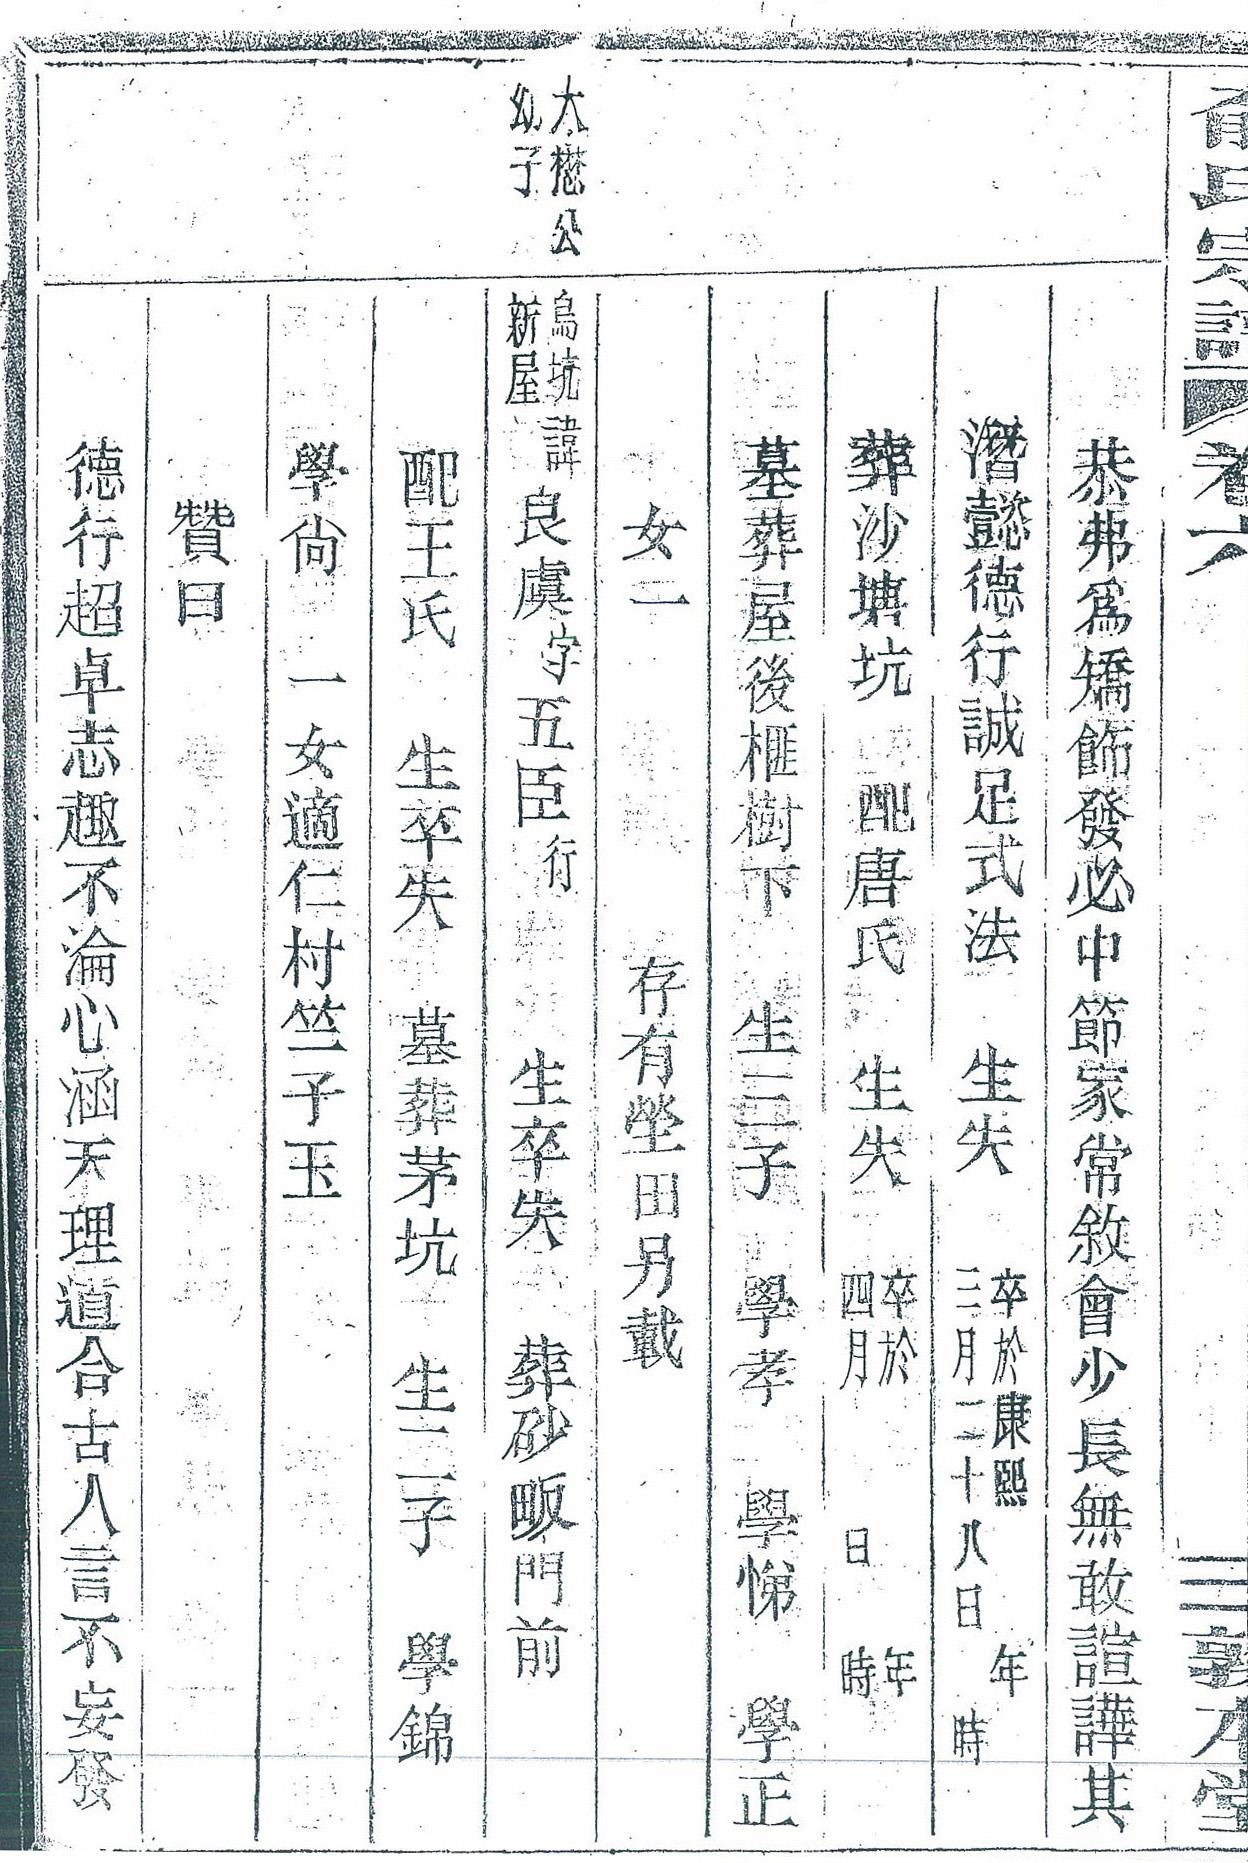 氏宗譜 卷六 三 敦本堂
恭弗爲矯飾發必中節家常敘會少長無敢諠譁其
潛懿德行誠足式法 生失 卒於康熙 年
三月二十八日 時
葬沙塘坑 配唐氏 生失 卒於 年
四月 日 時
墓葬屋後榧樹下 生三子 學孝 學悌 學正
女二 存有塋田另載
大懋公
幼子
烏坑
新屋
諱良虞字五臣行 生卒失 葬砂畈門前
配王氏 生卒失 墓葬茅坑 生二子 學錦
學尙 一女適仁村竺子玉
贊曰
德行超卓志趣不淪心涵天理道合古人言不妄發